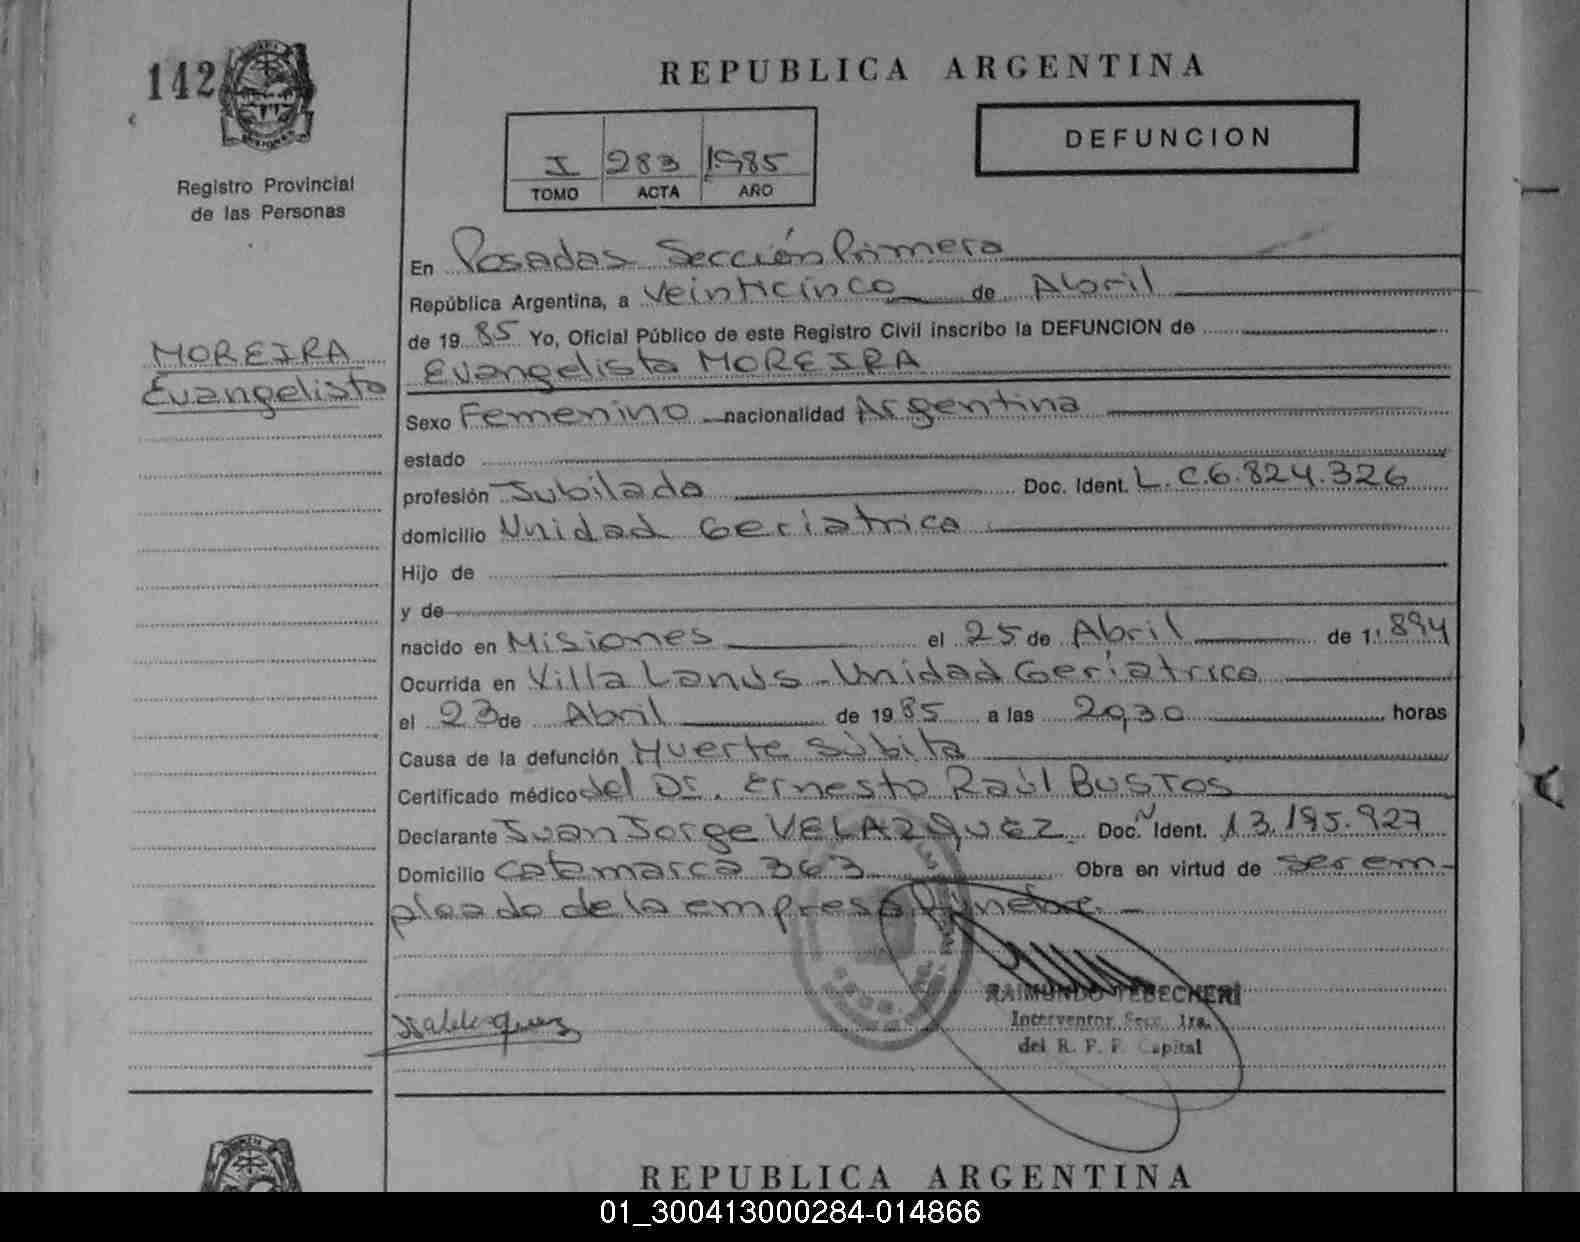 142
Registro Provincial
de las Personas
MOREIRA
Evangelista
REPUBLICA ARGENTINA
I 283 1985
TOMO ACTA AÑO
DEFUNCION
En Posadas Sección Primera
República Argentina, a Veinticinco de Abril
de 19 85 Yo, Oficial Público de este Registro Civil inscribo la DEFUNCION de
Evangelista MOREIRA
Sexo Femenino nacionalidad Argentina
estado
profesión Jubilada Doc. Ident. L.C.6.824.326
domicilio Unidad Geriatrica
Hijo de
y de
nacido en Misiones el 25 de Abril de 1.894
Ocurrida en Villa Lanús - Unidad Geriatrica
el 23 de Abril de 1985 a las horas
Causa de la defunción Muerte Súbita
Certificado médico del Dr. Ernesto Raúl BUSTOS
Declarante Juan Jorge VELAZQUEZ Doc. N Ident. 13.195.927
Domicilio Catamarca 363 Obra en virtud de ser em-
pleado de la empresa fúnebre.-
RAIMUNDO TEBECHERI
Interventor Secc. 1ra.
del R. P. P. Capital
REPUBLICA ARGENTINA
01_300413000284-014866